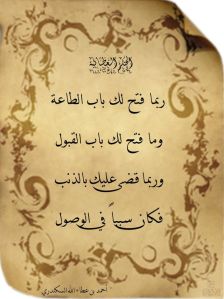 الحكم العطائية
ربما فتح لك باب الطاعة
وما فتح لك باب القبول
وربما قضى عليك بالذنب
فكان سبباً في الوصول
أحمد بن عطاء الله السكندري